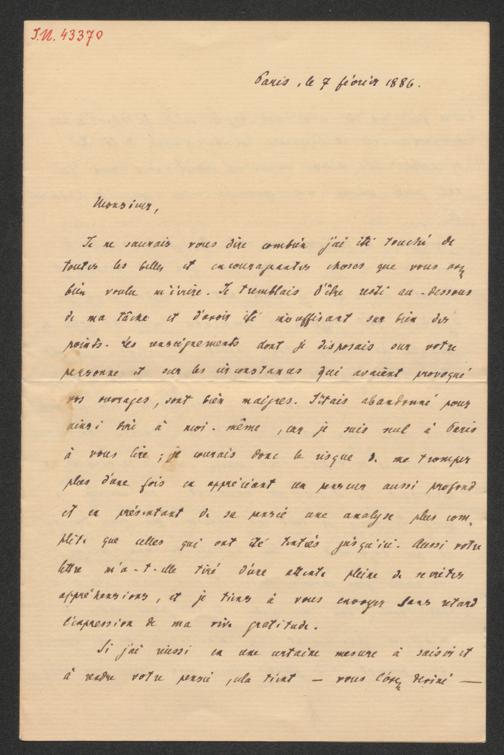 I.N. 43370
Paris, le 7 février 1886.
Monsieur,
Je ne saurais vous dire combien j'ai été touché de
toutes les belles et encourageantes choses que vous avez
bien voulu m'écrire. Je tremblais d'être resté au-dessous
de ma tâche et d'avoir été insuffisant sur bien des
points. Les renseignements dont je disposais sur votre
personne et sur les circonstances qui avaient provoqué
vos ouvrages, sont bien maigres. J'étais abandonné pour
ainsi dire à moi-même, car je suis seul à Paris
à vous lire ; je courais donc le risque de me tromper
plus d'une fois en appréciant un penseur aussi profond
et en présentant de sa pensée une analyse plus com-
plète que celles qui ont été tentées jusqu'ici. Aussi votre
lettre m'a-t-elle tiré d'une attente pleine de secrètes
appréhensions, et je tiens à vous envoyer sans retard
l'expression de ma vive gratitude.
Si j'ai réussi en une certaine mesure à saisir et
à rendre votre pensée, cela tient — vous l'avez deviné —